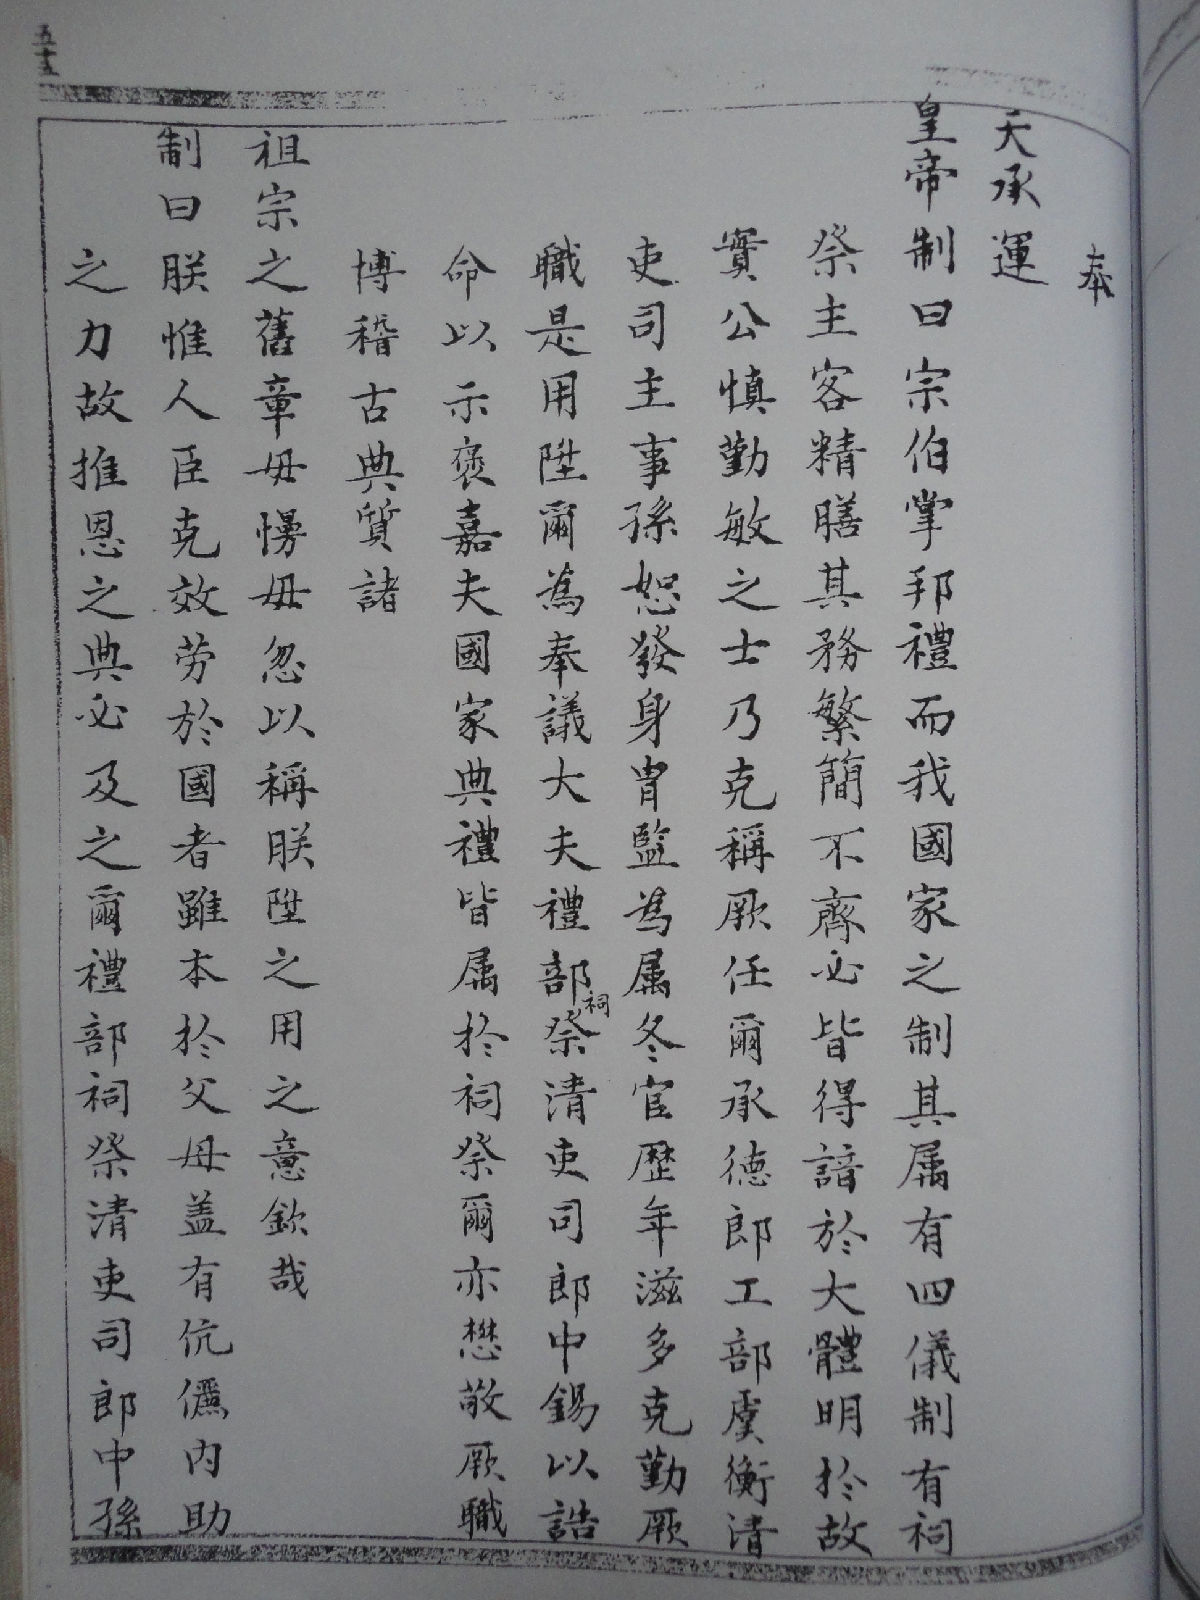 奉
天承運
皇帝制曰宗伯掌邦禮而我國家之制其属有四儀制有祠
祭主客精膳其務繁簡不齊必皆得諳於大體明於故
實公慎勤敏之士乃克稱厥任爾承德郎工部虞衡清
吏司主事孫恕發身胄監為属冬官歷年滋多克勤厥
職是用陞爾為奉議大夫禮部祠祭清吏司郎中錫以誥
命以示褒嘉夫國家典禮皆属於祠祭爾亦懋敬厥職
博稽古典質諸
祖宗之舊章毋慢毋忽以稱朕陞之用之意欽哉
制曰朕惟人臣克效劳於國者雖本於父母盖有伉儷内助
之力故推恩之典必及之爾禮部祠祭清吏司郎中孫
五十五